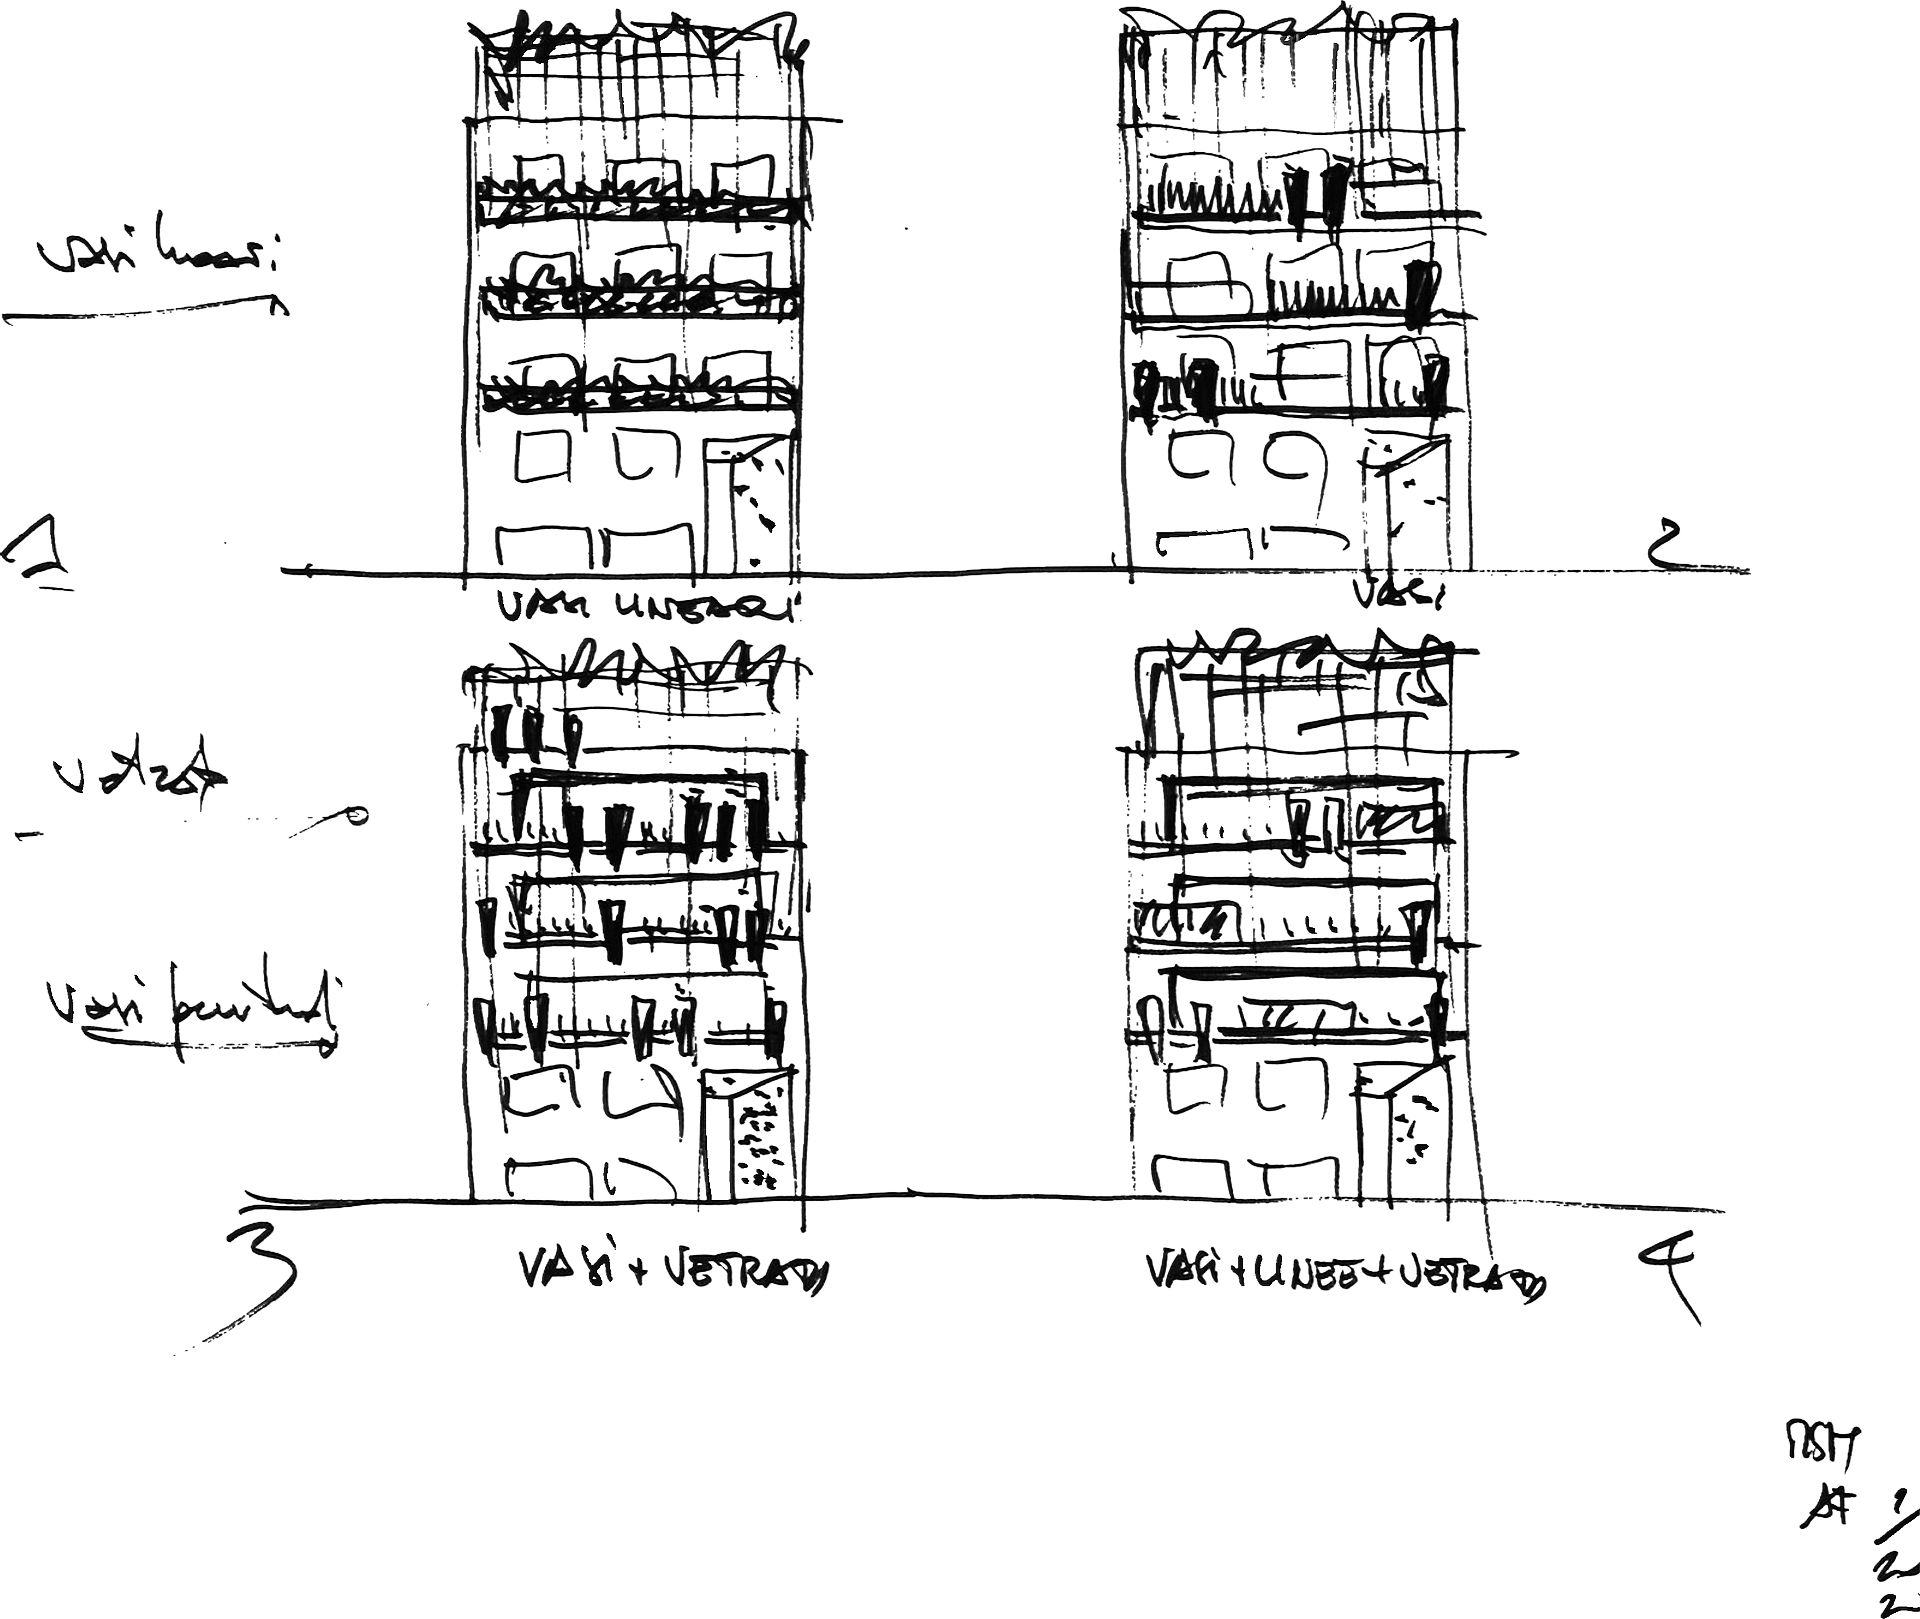 vasi lineari
1
2
VASI LINEARI
VASI
vetrate
vasi puntuali
3
VASI + VETRATE
VASI + LINEE + VETRATE
4